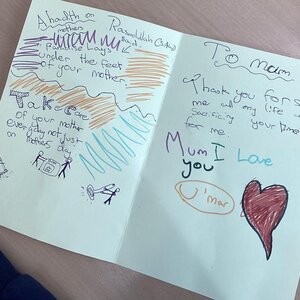 A hadith on
mothers
Rasoolullah (saw)
said
Lays
under the feet
of your mother
Take care
of your mother
everyday not just
on mothers day
To mum
Thank you for
me all my life
Sacrificing your time
for me
Mum I Love
you